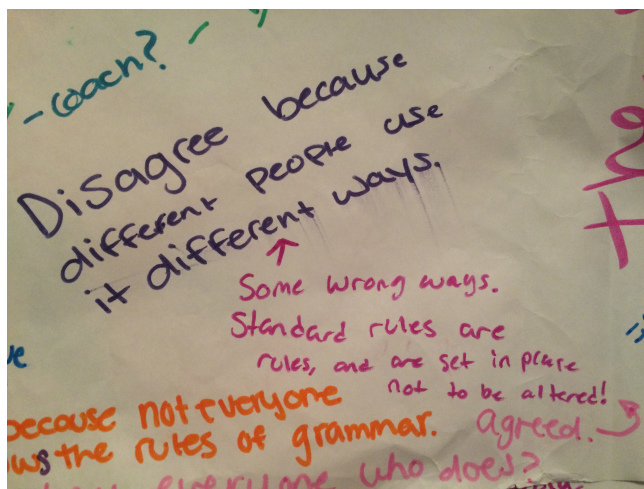 - coach?
Disagree because
different people use
it different ways.
Some wrong ways.
Standard rules are
rules, and are set in place
not to be altered!
because not everyone
ows the rules of grammar.
agreed.
everyone who does?